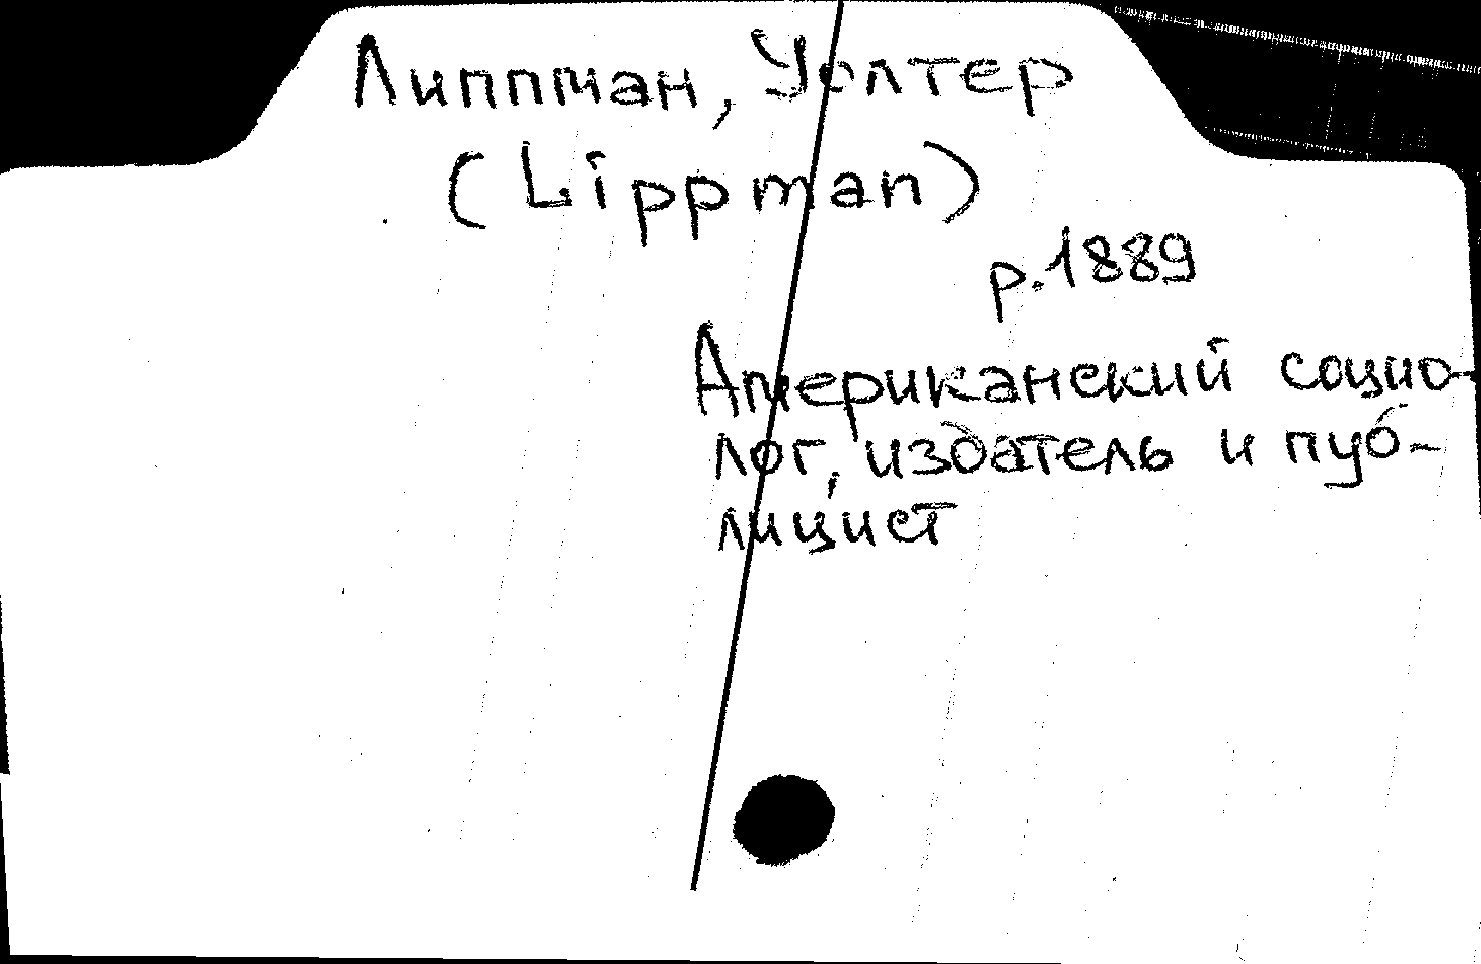 Липпман, Уолтер
(Lippman)
р. 1889
Американский социо-
лог, издатель и пуб-
лицист